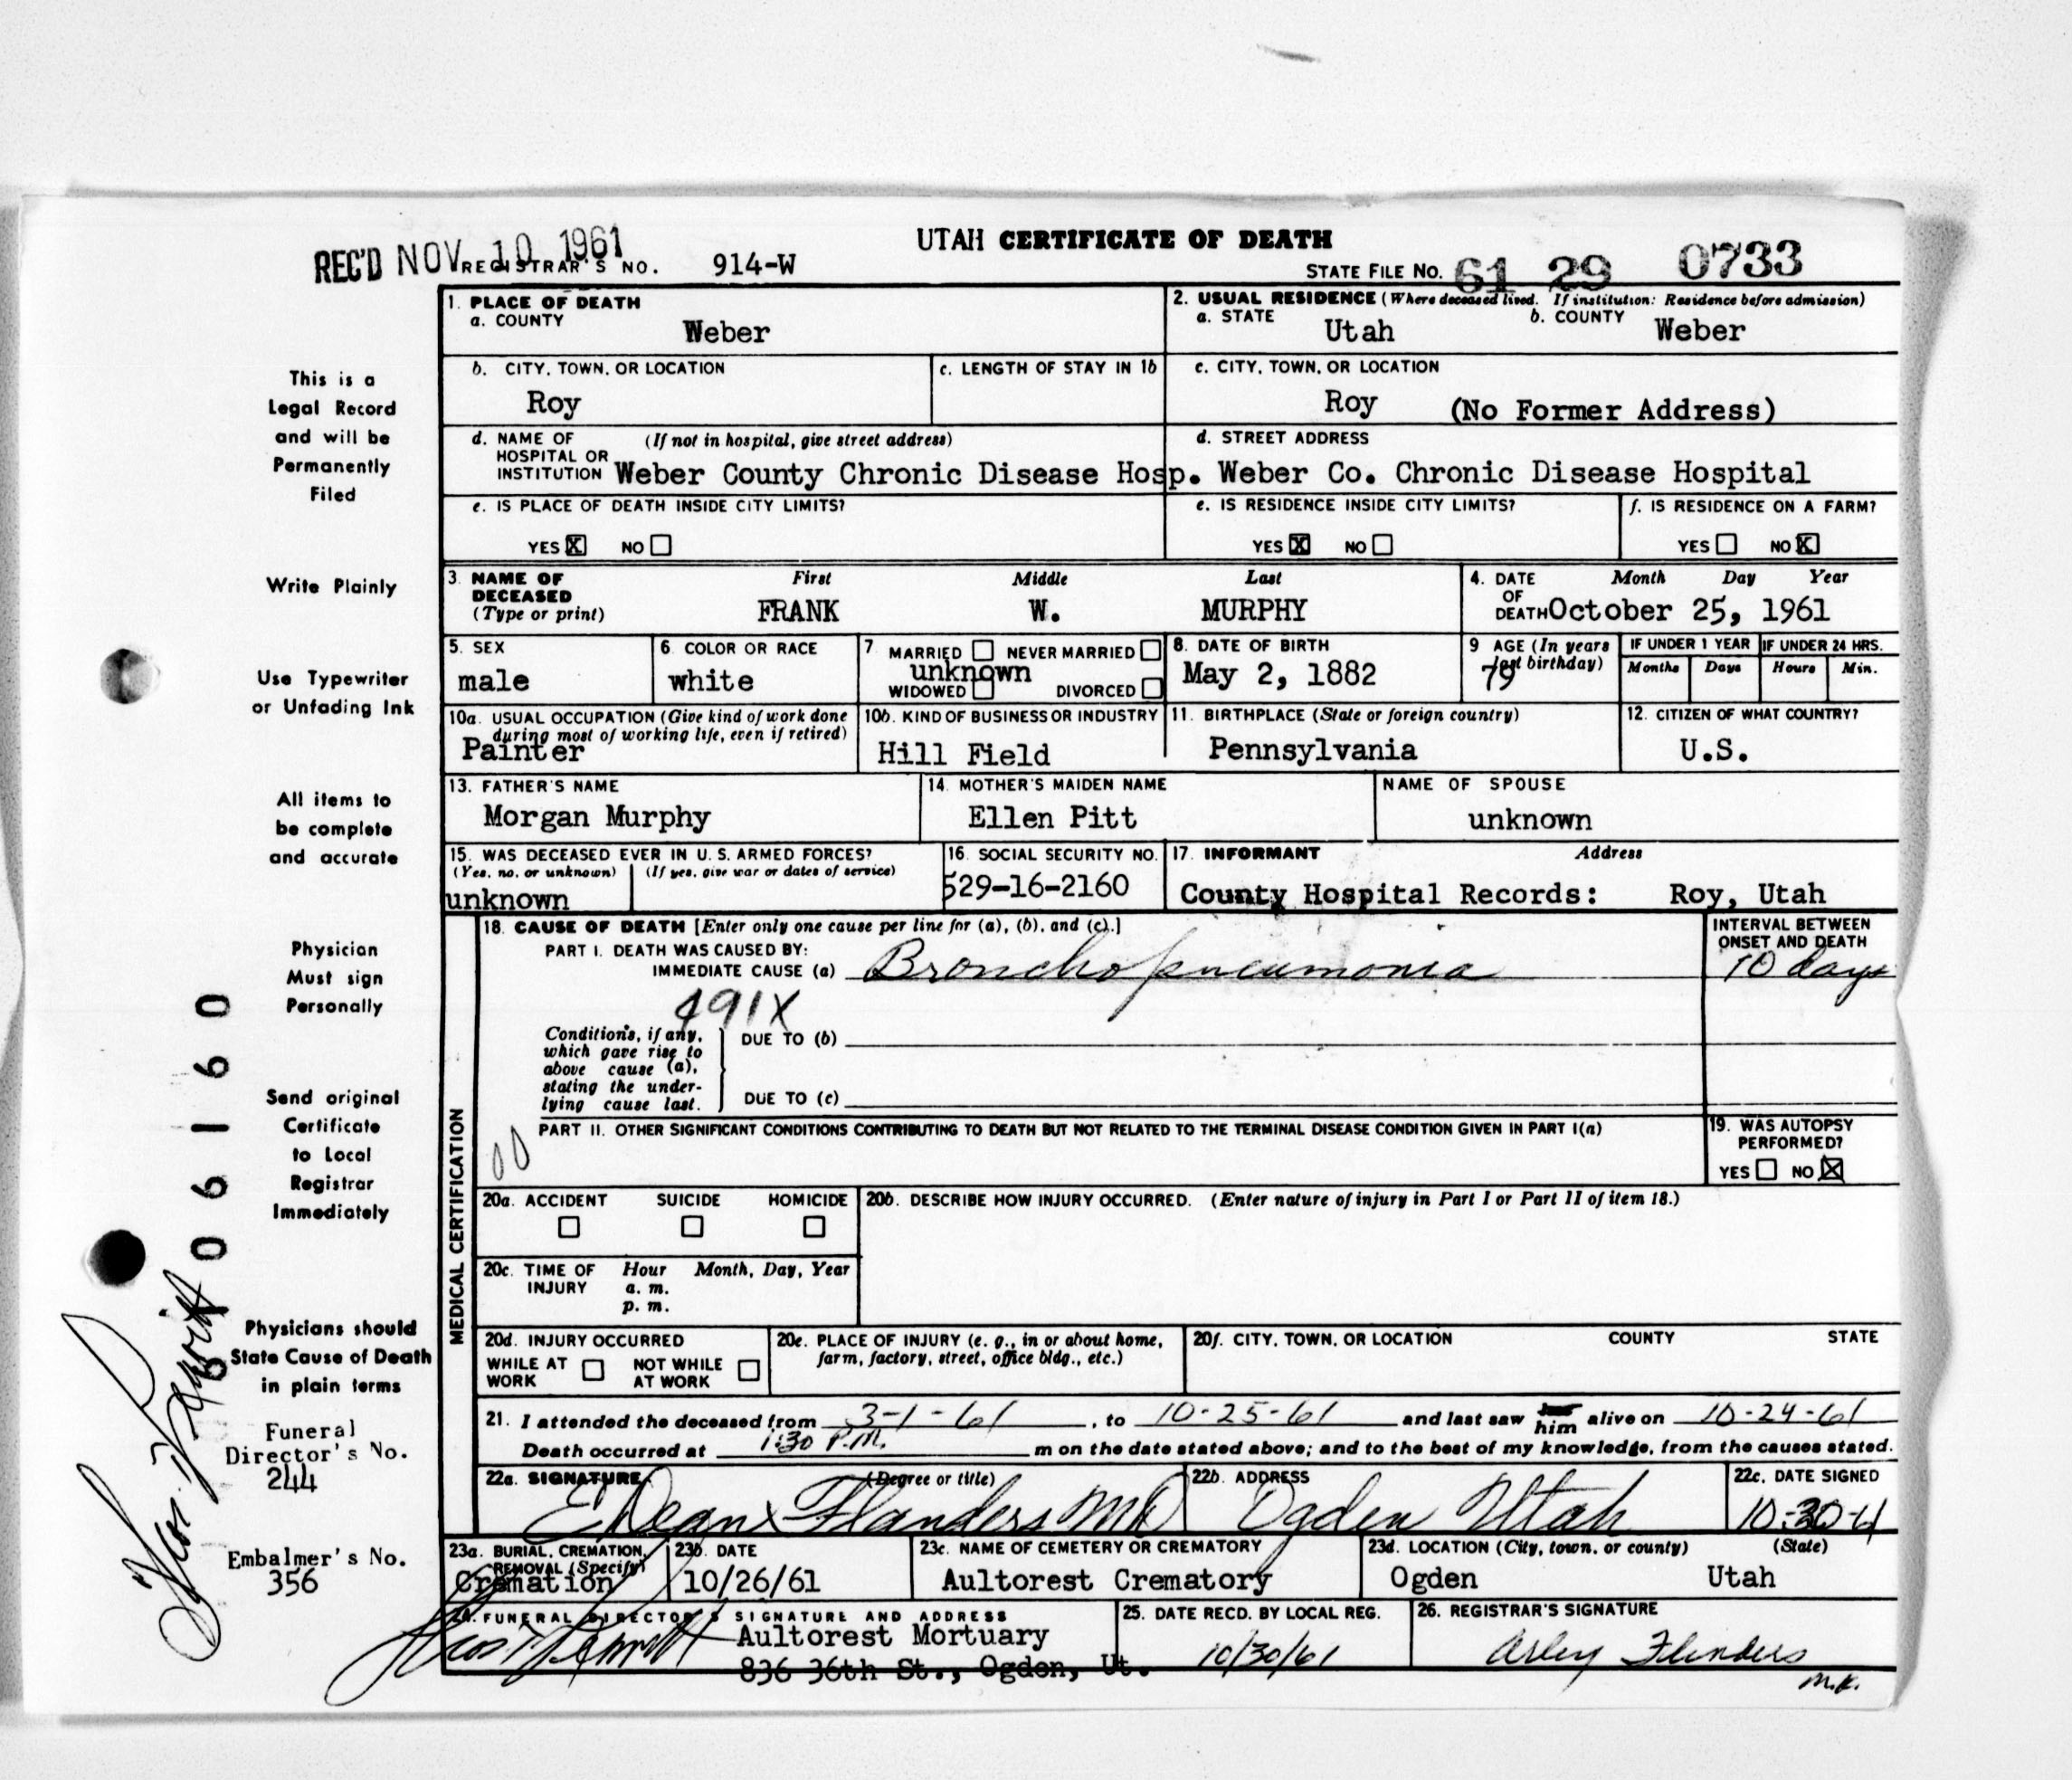 UTAH CERTIFICATE OF DEATH
REC'D NOV 10 1961
REGISTRAR'S NO. 914-W
STATE FILE NO. 61 29 0733
1. PLACE OF DEATH
a. COUNTY
Weber
2. USUAL RESIDENCE (Where deceased lived. If institution: Residence before admission)
a. STATE
Utah
b. COUNTY
Weber
b. CITY, TOWN, OR LOCATION
Roy
c. LENGTH OF STAY IN 1b
c. CITY, TOWN, OR LOCATION
Roy (No Former Address)
d. NAME OF HOSPITAL OR INSTITUTION
(If not in hospital, give street address)
Weber County Chronic Disease Hosp.
d. STREET ADDRESS
Weber Co. Chronic Disease Hospital
e. IS PLACE OF DEATH INSIDE CITY LIMITS?
YES X NO
e. IS RESIDENCE INSIDE CITY LIMITS?
YES X NO
f. IS RESIDENCE ON A FARM?
YES NO X
3. NAME OF DECEASED
(Type or print)
First Middle Last
FRANK W. MURPHY
4. DATE OF DEATH
Month Day Year
October 25, 1961
5. SEX
male
6. COLOR OR RACE
white
7. MARRIED NEVER MARRIED
unknown
WIDOWED DIVORCED
8. DATE OF BIRTH
May 2, 1882
9 AGE (In years last birthday)
79
IF UNDER 1 YEAR
Months Days
IF UNDER 24 HRS.
Hours Min.
10a. USUAL OCCUPATION (Give kind of work done during most of working life, even if retired)
Painter
10b. KIND OF BUSINESS OR INDUSTRY
Hill Field
11. BIRTHPLACE (State or foreign country)
Pennsylvania
12. CITIZEN OF WHAT COUNTRY?
U.S.
13. FATHER'S NAME
Morgan Murphy
14. MOTHER'S MAIDEN NAME
Ellen Pitt
NAME OF SPOUSE
unknown
15. WAS DECEASED EVER IN U.S. ARMED FORCES?
(Yes, no, or unknown) (If yes, give war or dates of service)
unknown
16. SOCIAL SECURITY NO.
529-16-2160
17. INFORMANT Address
County Hospital Records: Roy, Utah
MEDICAL CERTIFICATION
18. CAUSE OF DEATH [Enter only one cause per line for (a), (b), and (c).]
PART I. DEATH WAS CAUSED BY:
IMMEDIATE CAUSE (a) Bronchopneumonia
INTERVAL BETWEEN ONSET AND DEATH
10 days
491X
Conditions, if any, which gave rise to above cause (a), stating the underlying cause last.
DUE TO (b)
DUE TO (c)
00
PART II. OTHER SIGNIFICANT CONDITIONS CONTRIBUTING TO DEATH BUT NOT RELATED TO THE TERMINAL DISEASE CONDITION GIVEN IN PART I(a)
19. WAS AUTOPSY PERFORMED?
YES NO X
20a. ACCIDENT SUICIDE HOMICIDE
20b. DESCRIBE HOW INJURY OCCURRED. (Enter nature of injury in Part I or Part II of item 18.)
20c. TIME OF INJURY
Hour Month, Day, Year
a. m.
p. m.
20d. INJURY OCCURRED
WHILE AT WORK NOT WHILE AT WORK
20e. PLACE OF INJURY (e. g., in or about home, farm, factory, street, office bldg., etc.)
20f. CITY, TOWN, OR LOCATION COUNTY STATE
21. I attended the deceased from 3-1-61, to 10-25-61 and last saw him alive on 10-24-61
Death occurred at 1:30 P.M. m on the date stated above; and to the best of my knowledge, from the causes stated.
22a. SIGNATURE (Degree or title)
E Dean Flanders MD
22b. ADDRESS
Ogden Utah
22c. DATE SIGNED
10-30-61
23a. BURIAL, CREMATION, REMOVAL (Specify)
Cremation
23b. DATE
10/26/61
23c. NAME OF CEMETERY OR CREMATORY
Aultorest Crematory
23d. LOCATION (City, town, or county) (State)
Ogden Utah
24. FUNERAL DIRECTOR'S SIGNATURE AND ADDRESS
Aultorest Mortuary
836 36th St., Ogden, Ut.
25. DATE RECD. BY LOCAL REG.
10/30/61
26. REGISTRAR'S SIGNATURE
Arley Flinders
M.K.
This is a
Legal Record
and will be
Permanently
Filed
Write Plainly
Use Typewriter
or Unfading Ink
All items to
be complete
and accurate
Physician
Must sign
Personally
Send original
Certificate
to Local
Registrar
Immediately
Physicians should
State Cause of Death
in plain terms
Funeral
Director's No.
244
Embalmer's No.
356